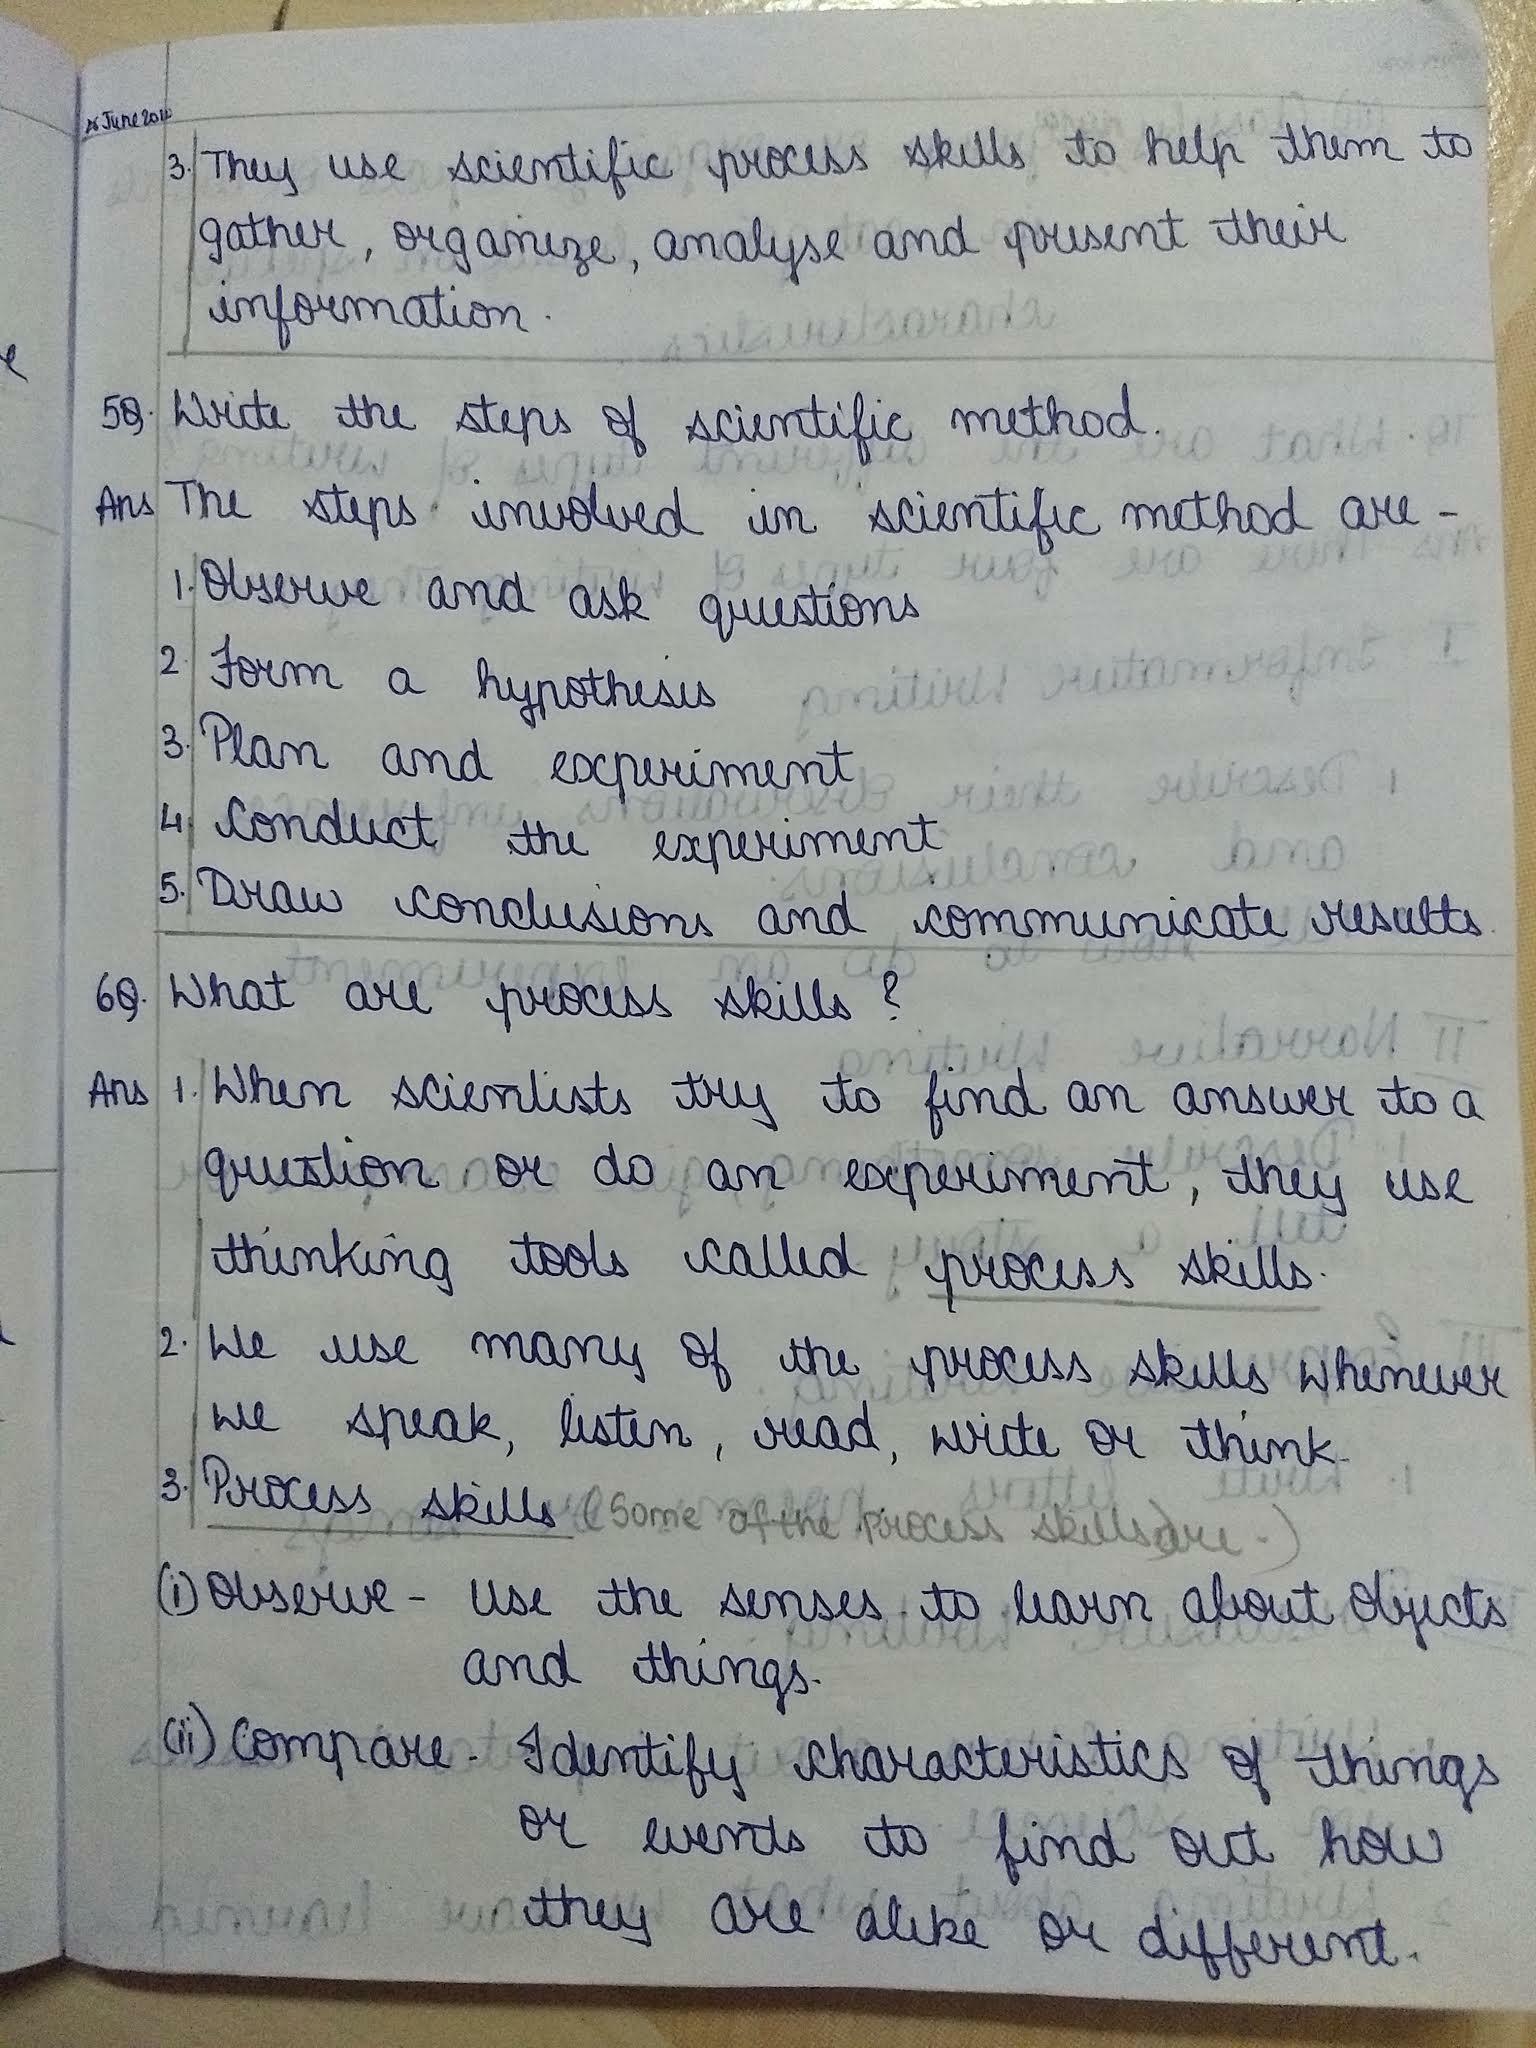 June 20
3. They use scientific process skills to help them to
gather, organize, analyse and present their
information.
5Q. Write the steps of scientific method.
Ans The steps involved in scientific method are -
1. Observe and ask questions
2. Form a hypothesis
3. Plan and experiment
4. Conduct the experiment
5. Draw conclusions and communicate results.
6Q. What are process skills?
Ans 1. When scientists try to find an answer to a
question or do an experiment, they use
thinking tools called process skills.
2. We use many of the process skills whenever
we speak, listen, read, write or think.
3. Process skills (Some of the process skills are -)
(i) Observe - Use the senses to learn about objects
and things.
(ii) Compare - Identify characteristics of things
or events to find out how
they are alike or different.